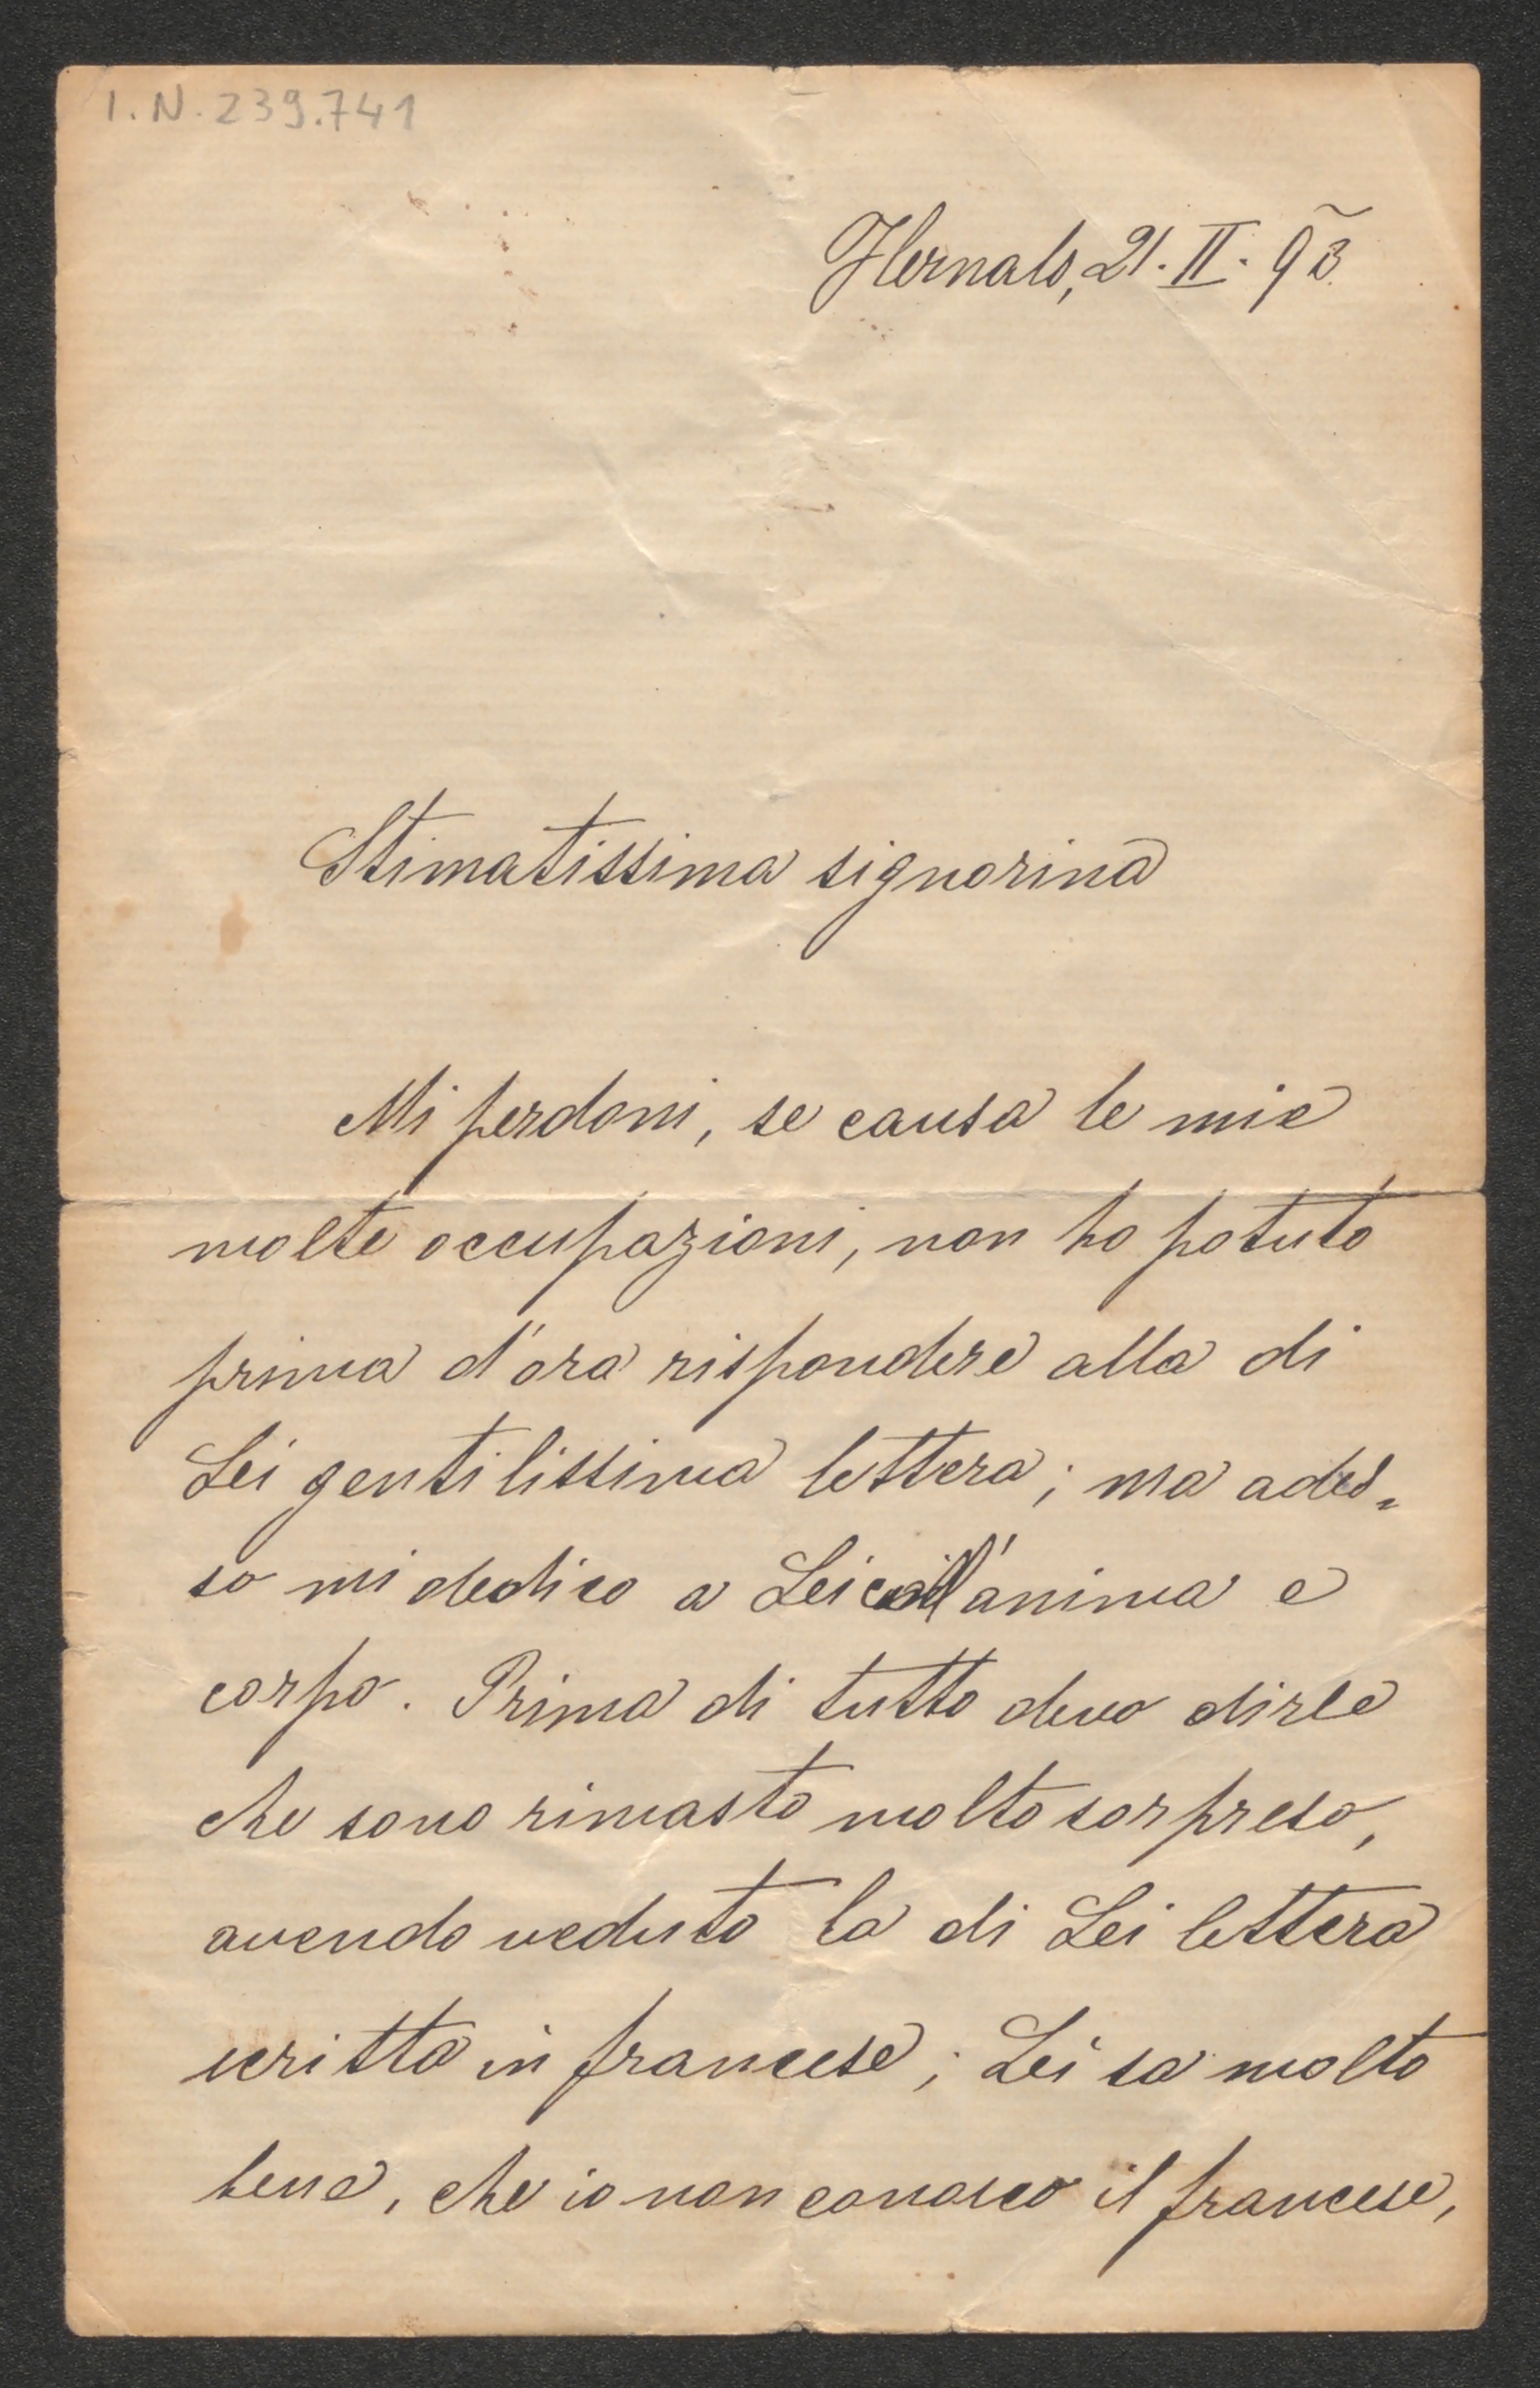 I.N. 239.741
Hernals, 21. II. 93
Stimatissima signorina
Mi perdoni, se causa le mie
molte occupazioni, non ho potuto
prima d'ora rispondere alla di
Lei gentilissima lettera; ma ades=
so mi dedico a Lei coll'anima e
corpo. Prima di tutto devo dirle
che sono rimasto molto sorpreso,
avendo veduto la di Lei lettera
scritta in francese; Lei sa molto
bene, che io non conosco il francese,